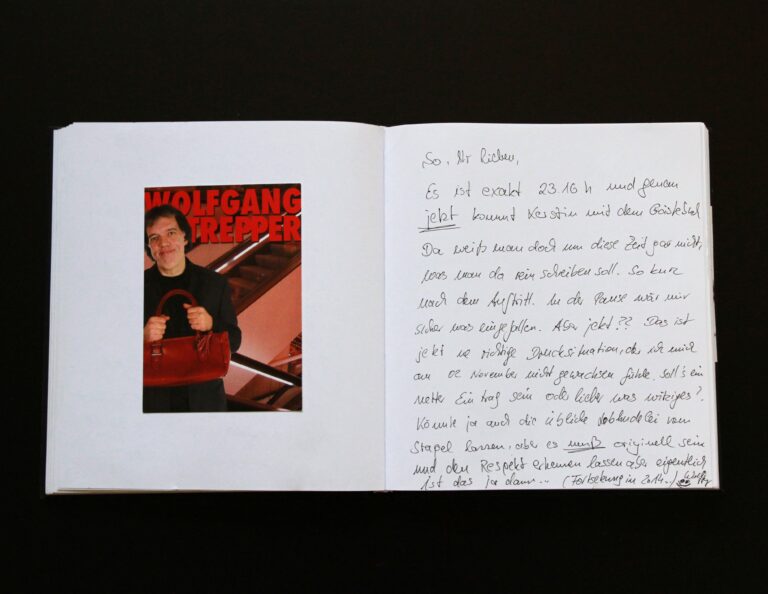 WOLFGANG
TREPPER
So, Ihr Lieben,
Es ist exakt 23 16 h und genau
jetzt kommt Kerstin mit dem Gästebuch
Da weiß man doch um diese Zeit gar nicht,
was man da rein schreiben soll. So kurz
nach dem Auftritt. In der Pause wär mir
sicher was eingefallen. Aber jetzt?? Das ist
jetzt ne richtige Drucksituation, der ich mich
am 02 November nicht gewachsen fühle. Soll's ein
netter Eintrag sein oder lieber was witziges?
Könnte ja auch die übliche Lobhudelei vom
Stapel lassen, aber es muß originell sein
und den Respekt erkennen lassen aber eigentlich
ist das ja dann... (Fortsetzung in 2014.)